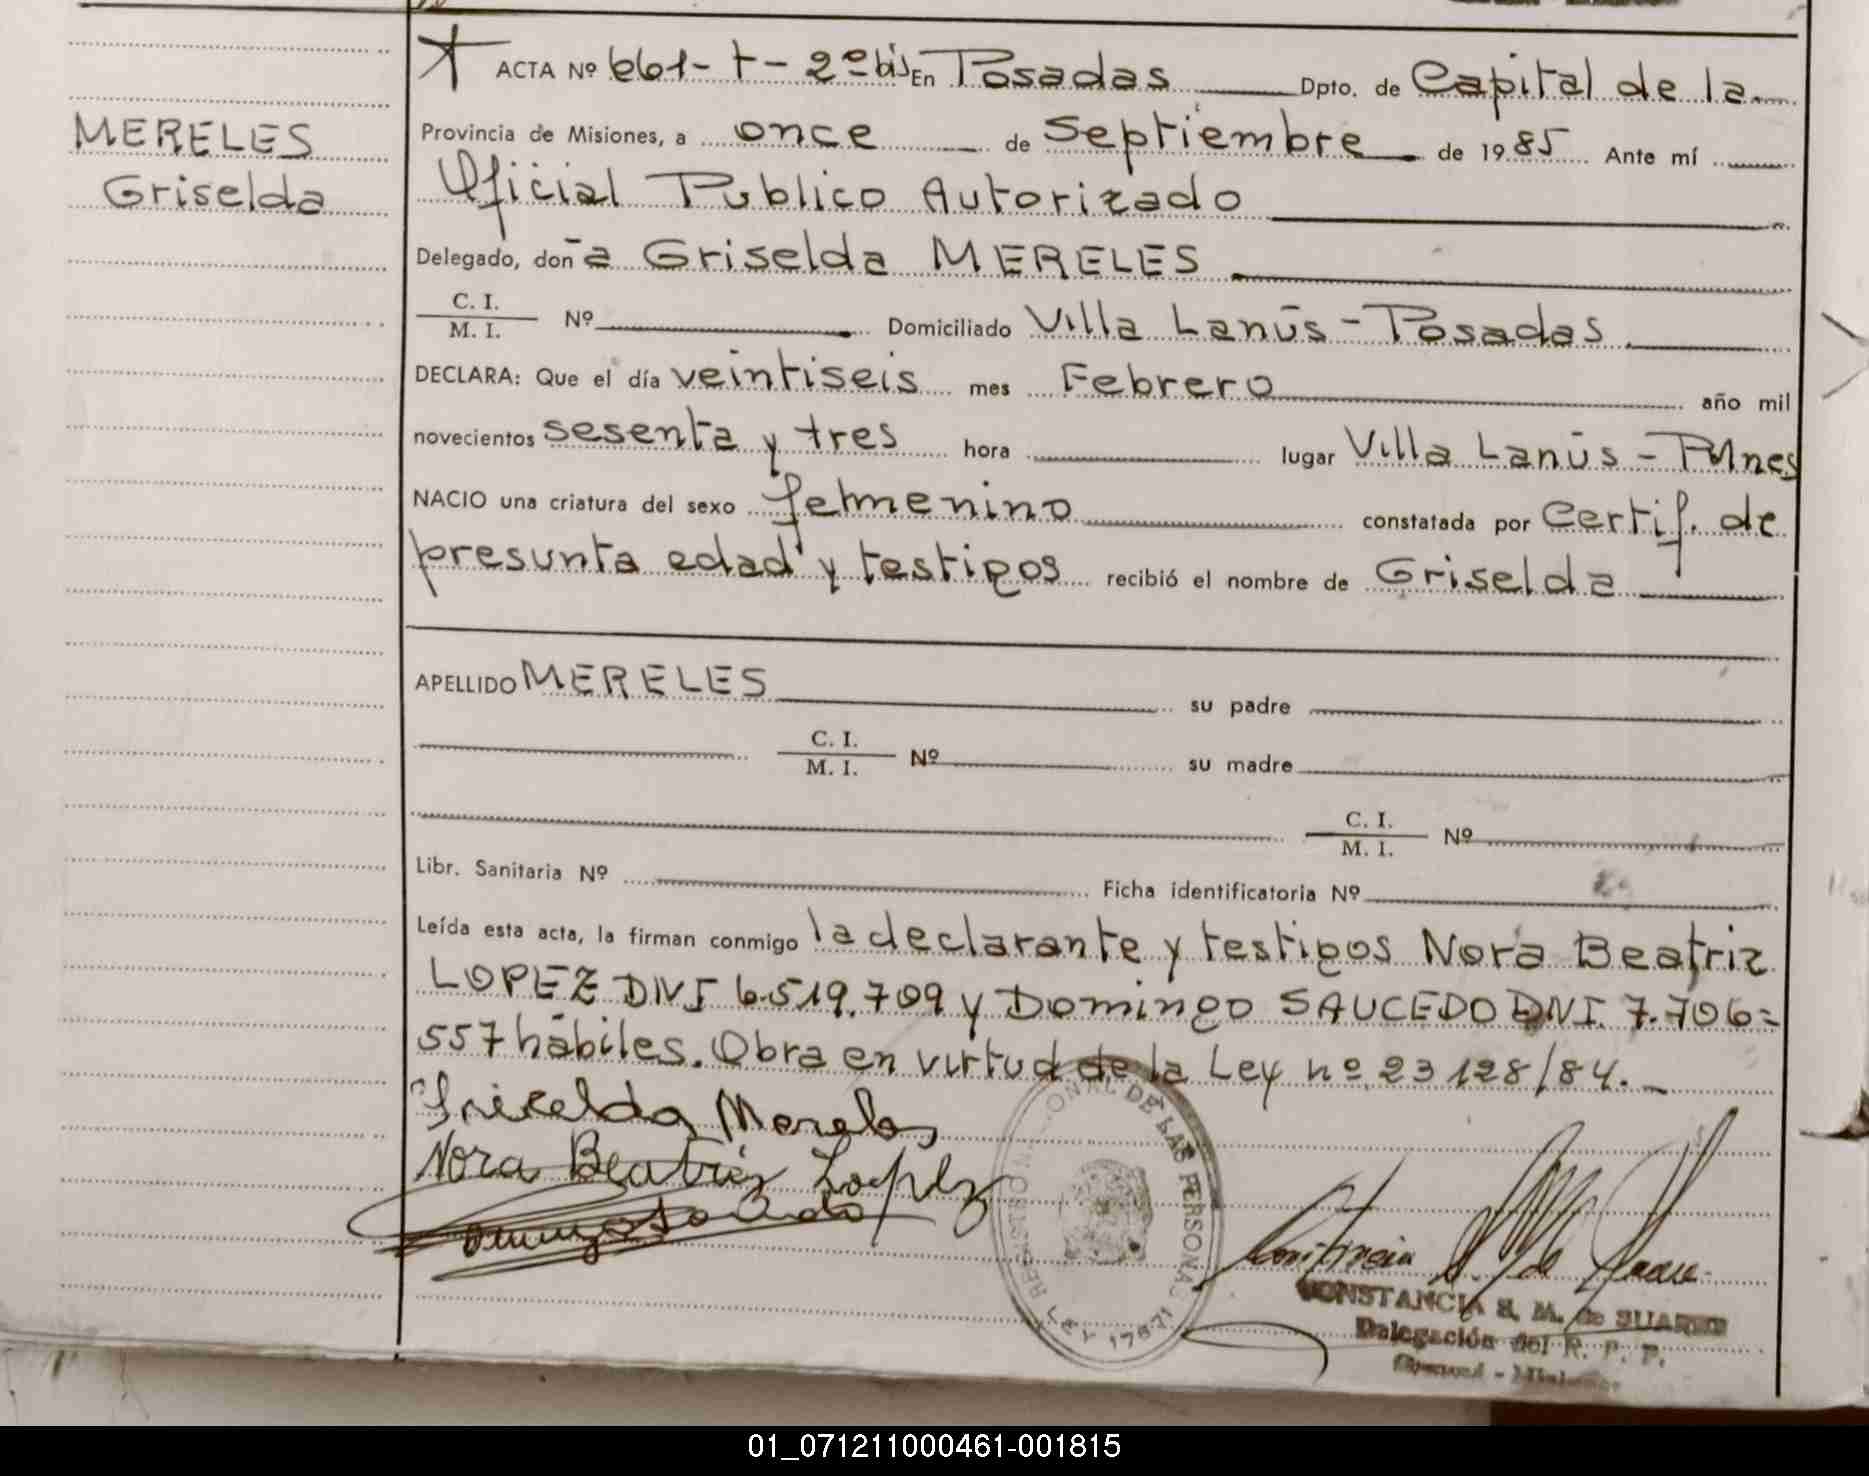 MERELES
Griselda
ACTA Nº 661-t-2º bis En Posadas Dpto. de Capital de la
Provincia de Misiones, a once de Septiembre de 1985 Ante mí
Oficial Publico Autorizado
Delegado, doña Griselda MERELES
C. I.
M. I. Nº Domiciliado Villa Lanús - Posadas
DECLARA: Que el día veintiseis mes Febrero año mil
novecientos sesenta y tres hora lugar Villa Lanús - Mnes
NACIO una criatura del sexo femenino constatada por Certif. de
presunta edad y testigos recibió el nombre de Griselda
APELLIDO MERELES su padre
C. I.
M. I. Nº su madre
C. I.
M. I. Nº
Libr. Sanitaria Nº Ficha identificatoria Nº
Leída esta acta, la firman conmigo la declarante y testigos Nora Beatriz
LOPEZ DNI 6.519.709 y Domingo SAUCEDO DNI. 7.706=
557 hábiles. Obra en virtud de la Ley nº 23128/84.
Griselda Mereles
Nora Beatriz Lopez
REGISTRO DE LAS PERSONAS
LEY 17671
CONSTANCIA S. M. de SUAREZ
Delegación del R. P. P.
01_071211000461-001815